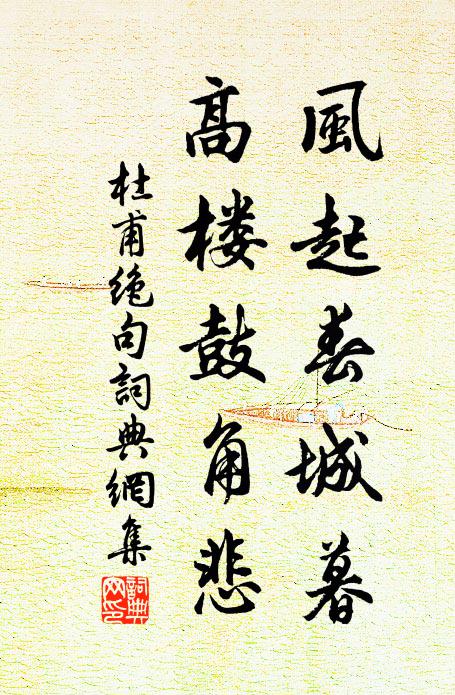 風起春城暮
高楼鼓角悲
杜甫絶句詞典網集
詞典
网印